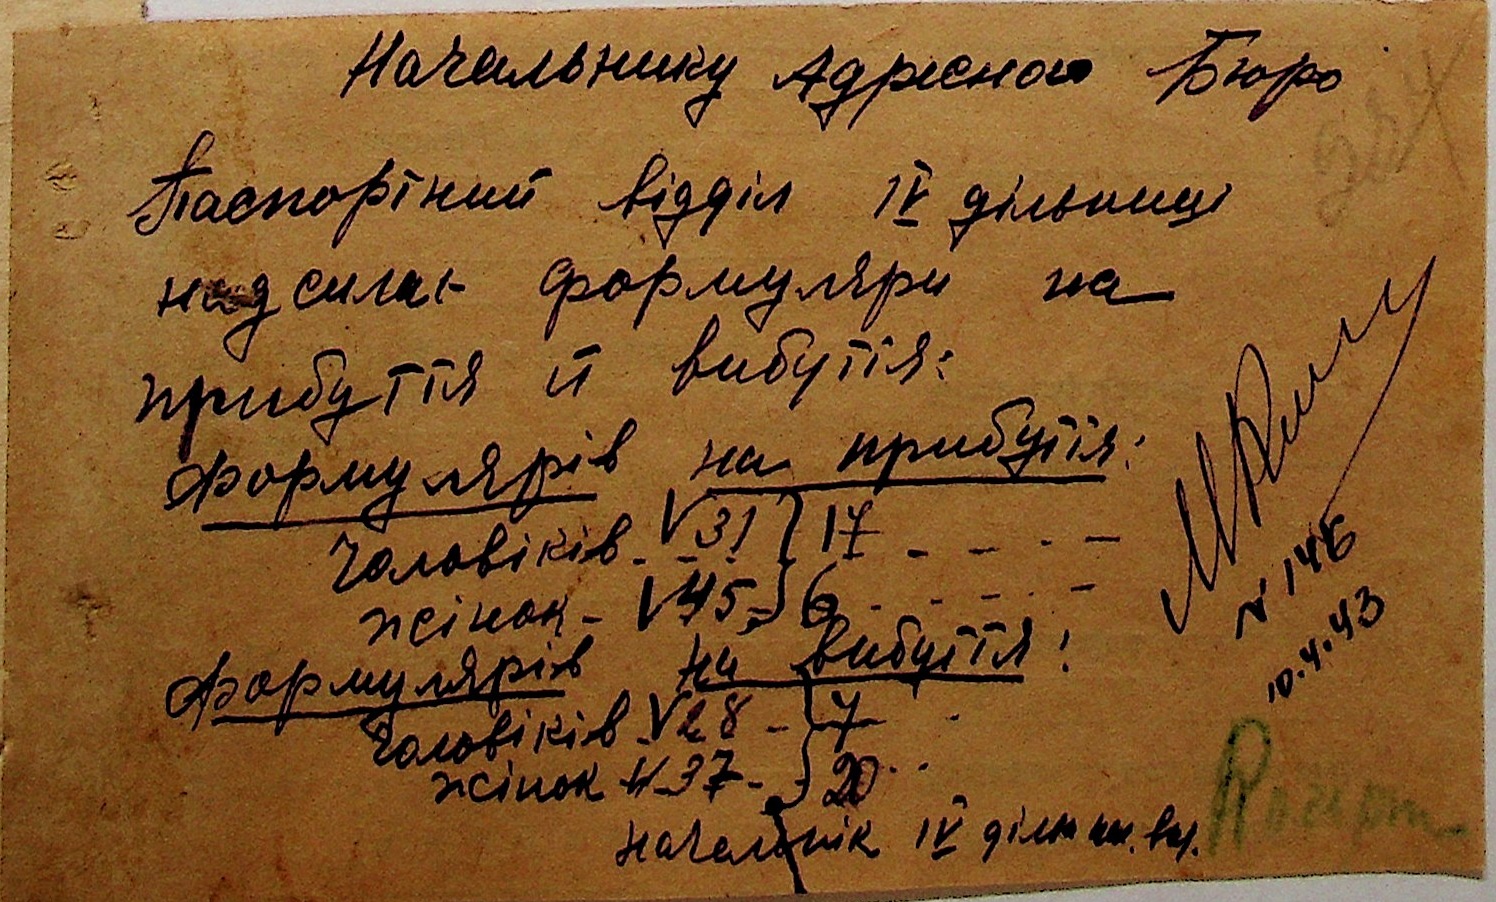 Начальнику Адресного Бюро
Паспортний відділ IV дільниці
надсилає формуляри на
прибуття й вибуття:
Формулярів на прибуття:
Чоловіків - √31 } 17 - - - -
Жінок - √45 - } 6 - - - - -
Формулярів на вибуття:
Чоловіків √28 - } 7 -
Жінок 37 - } 20 - -
Начальник IV дільниц.
№ 146
10.4.43